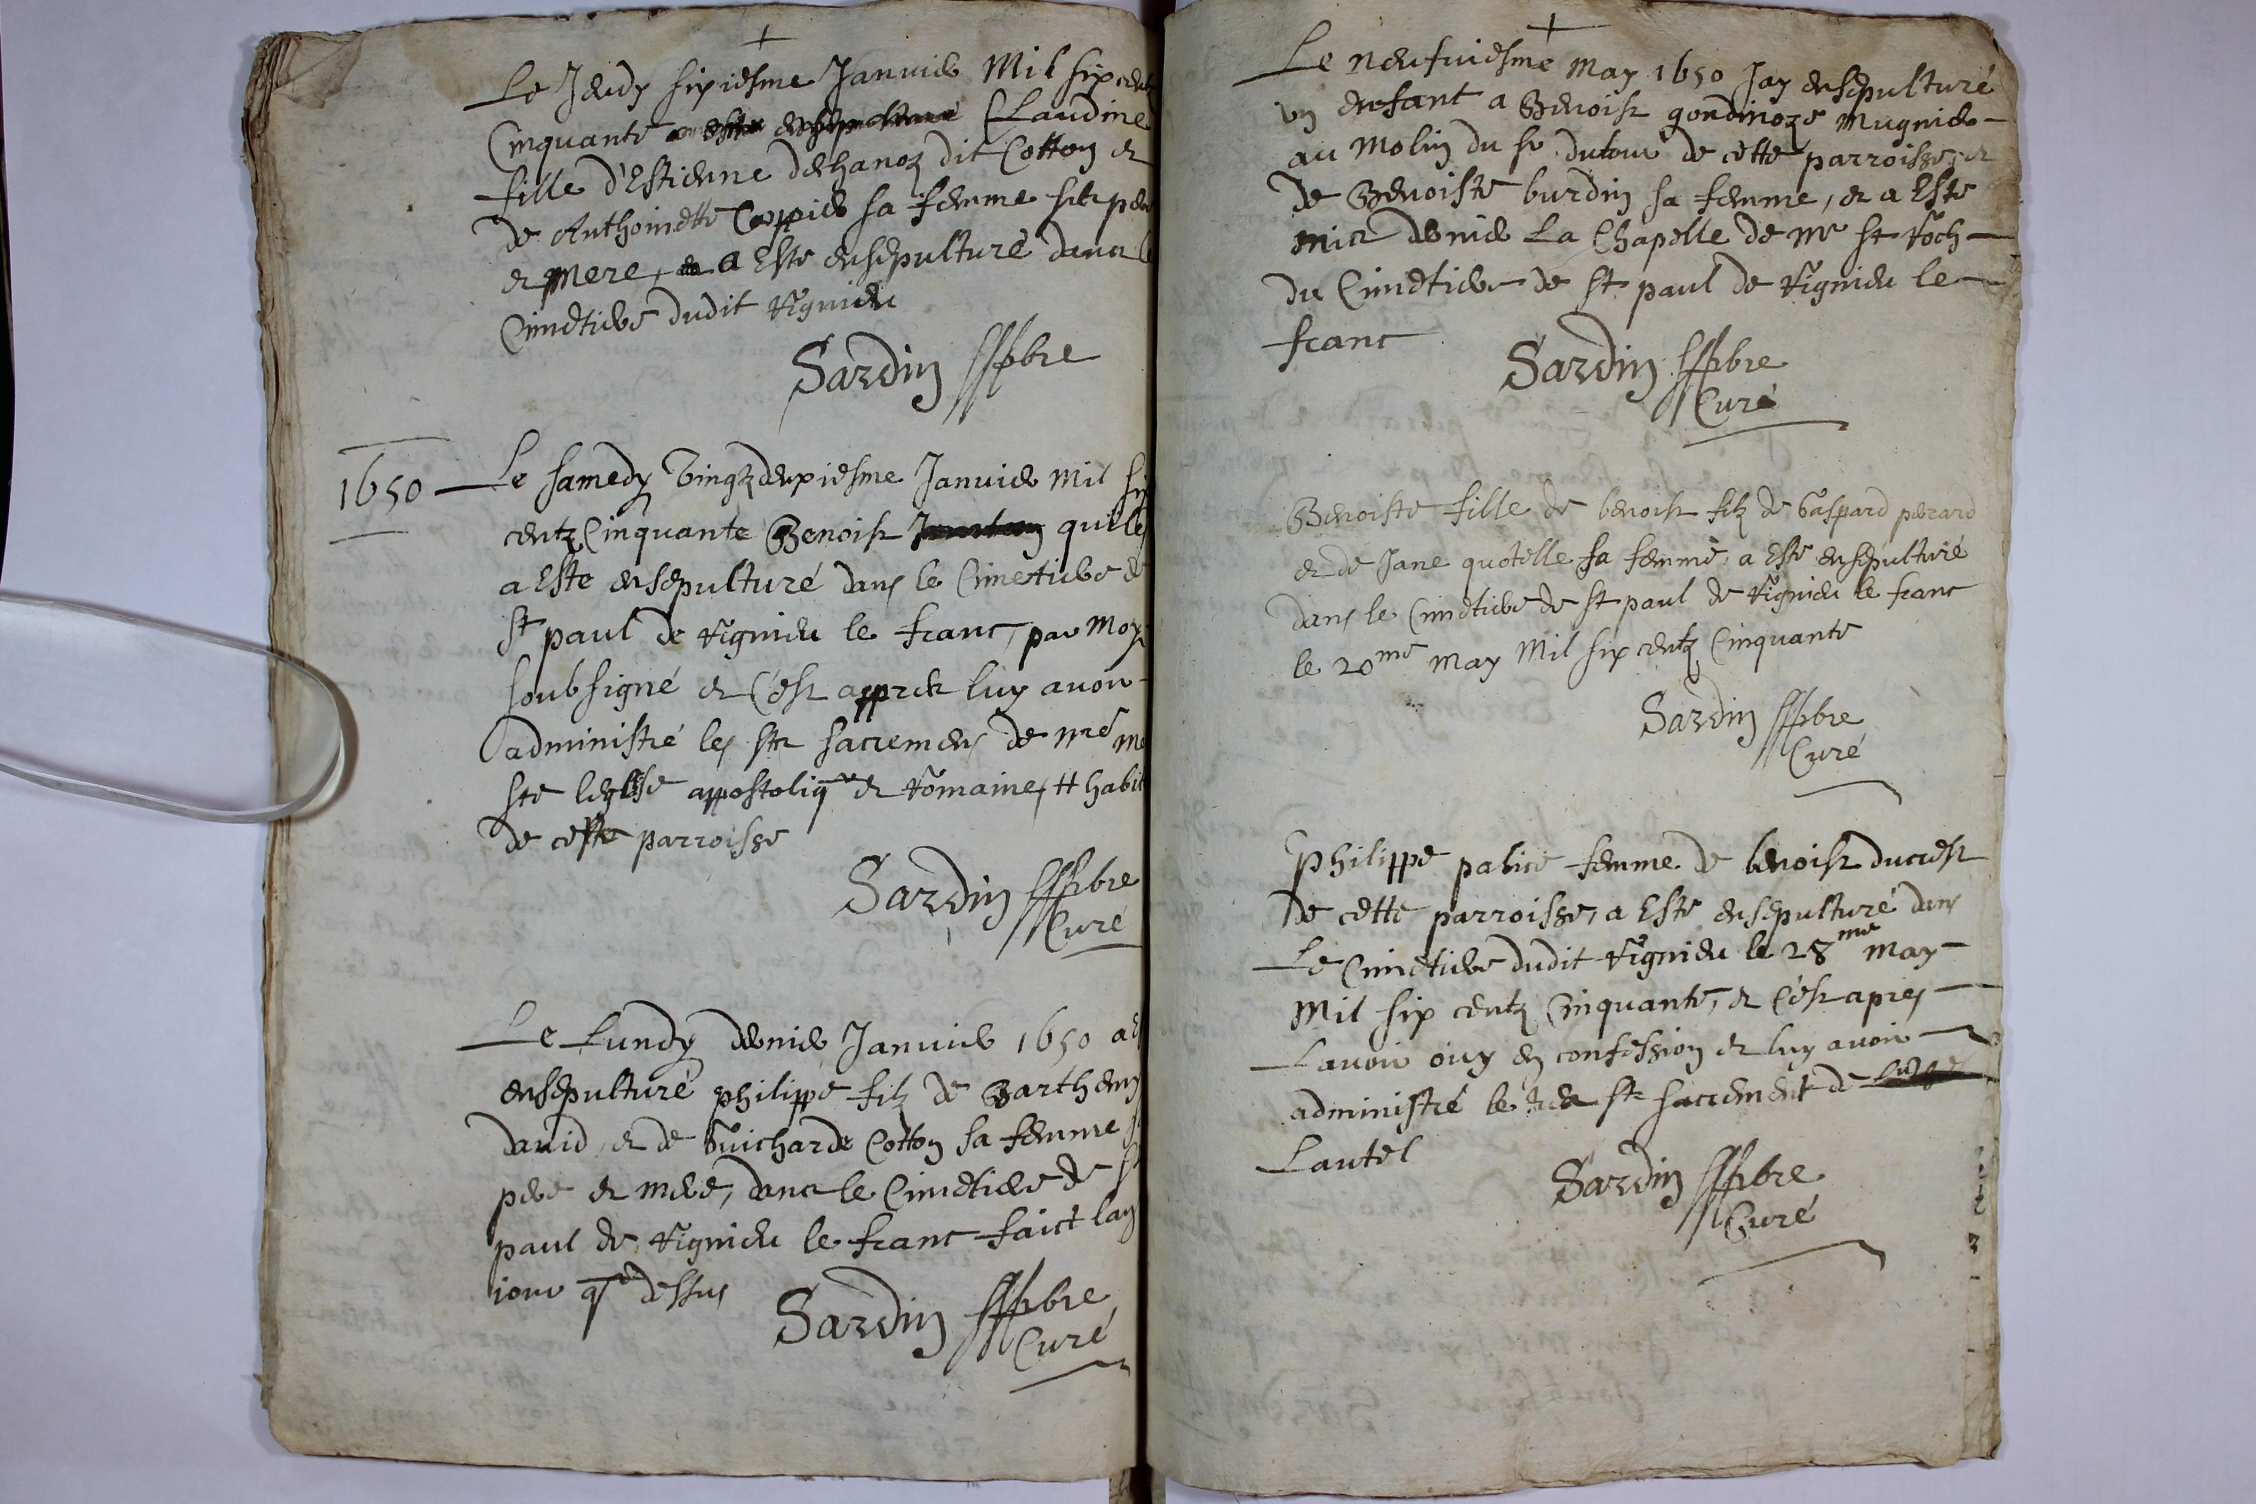 Le Jeudy sixiesme Januier Mil six centz
Cinquante a esté ensepulturé Claudine
fille d'Estienne dechanoz dit Cotton et
de Anthoinette Coppier sa femme ses pere
et mere, a Esté ensepulturé dans le
Cimetiere dudit Vignieu
Sardin pbre
1650
Le samedy vingtdeuxiesme Januier Mil six
centz Cinquante Benoist quilles
a Esté ensepulturé dans le Cimetiere de
st paul de Vignieu le franc, par Moy
soubsigné et C'est appres luy auoir
administré les sts sacremens de nre me
ste leglise appostoliq et Romaine, # habit
de ceste parroisse
Sardin pbre
Curé
Le Lundy dernier Januier 1650 a es
ensepulturé philippe filz de Barthemy
dauid, et de Guicharde Cotton sa femme
pere et mere, dans le Cimetiere de st
paul de Vignieu le franc faict lan
iour q dessus
Sardin pbre
Curé
Le neufuiesme May 1650 Jay ensepulturé
vn enfant a Benoist gondinoze Mugnier
au Molin du sr dutour de cette parroisse, et
de Benoiste burdin sa femme, et a Esté
mis dernier La Chapelle de mr st Roch
du Cimetiere de st paul de Vignieu le
franc
Sardin pbre
Curé
Benoiste fille de benoist filz de Gaspard perard
et de Jane quotelle sa femme, a Esté ensepulturé
dans le Cimetiere de st paul de Vignieu le franc
le 20me May Mil six centz Cinquante
Sardin pbre
Curé
Philippe palice femme de benoist ducrest
de cette parroisse, a Esté ensepulturé dans
Le Cimetiere dudit Vignieu le 28me May
Mil six centz Cinquante, et C'est apres
Lauoir ouy en confession et luy auoir
administré le st sacrement de
Lautel
Sardin pbre
Curé